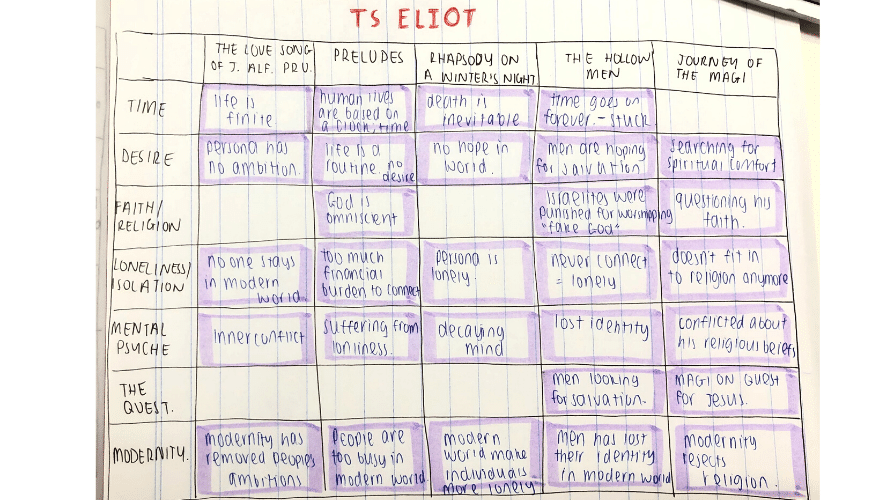 TS ELIOT
THE LOVE SONG
OF J. ALF. PRU.
PRELUDES
RHAPSODY ON
A WINTER'S NIGHT
THE HOLLOW
MEN
JOURNEY OF
THE MAGI
TIME
life is
finite
human lives
are based on
a clock, time
death is
inevitable
time goes on
forever. - stuck
DESIRE
persona has
no ambition.
life is a
routine, no
desire
no hope in
world.
men are hoping
for salvation
searching for
spiritual comfort
FAITH/
RELIGION
God is
omniscient
Israelites were
punished for worshipping
"fake God"
questioning his
faith.
LONELINESS/
ISOLATION
no one stays
in modern
world.
too much
financial
burden to connect
persona is
lonely.
never connect
= lonely
doesn't fit in
to religion anymore
MENTAL
PSYCHE
inner conflict
suffering from
lonliness.
decaying
mind
lost identity
conflicted about
his religious beliefs
THE
QUEST.
men looking
for salvation.
MAGI ON QUEST
FOR JESUS.
MODERNITY.
modernity has
removed people's
ambitions
people are
too busy in
modern world.
modern
world make
individuals
more lonely
men has lost
their identity
in modern world
modernity
rejects
religion.